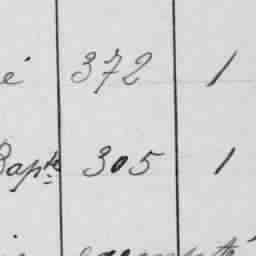 é 372 1
Bapte 305 1